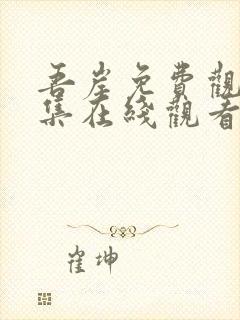 吾岸免費觀
集在綫觀看
崔坤